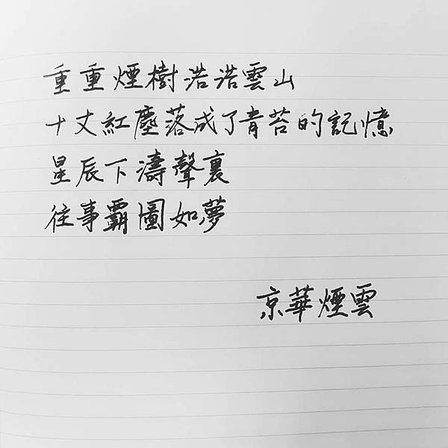 重重煙樹浩浩雲山
十丈紅塵落成了青苔的記憶
星辰下濤聲裏
往事霸圖如夢
京華煙雲